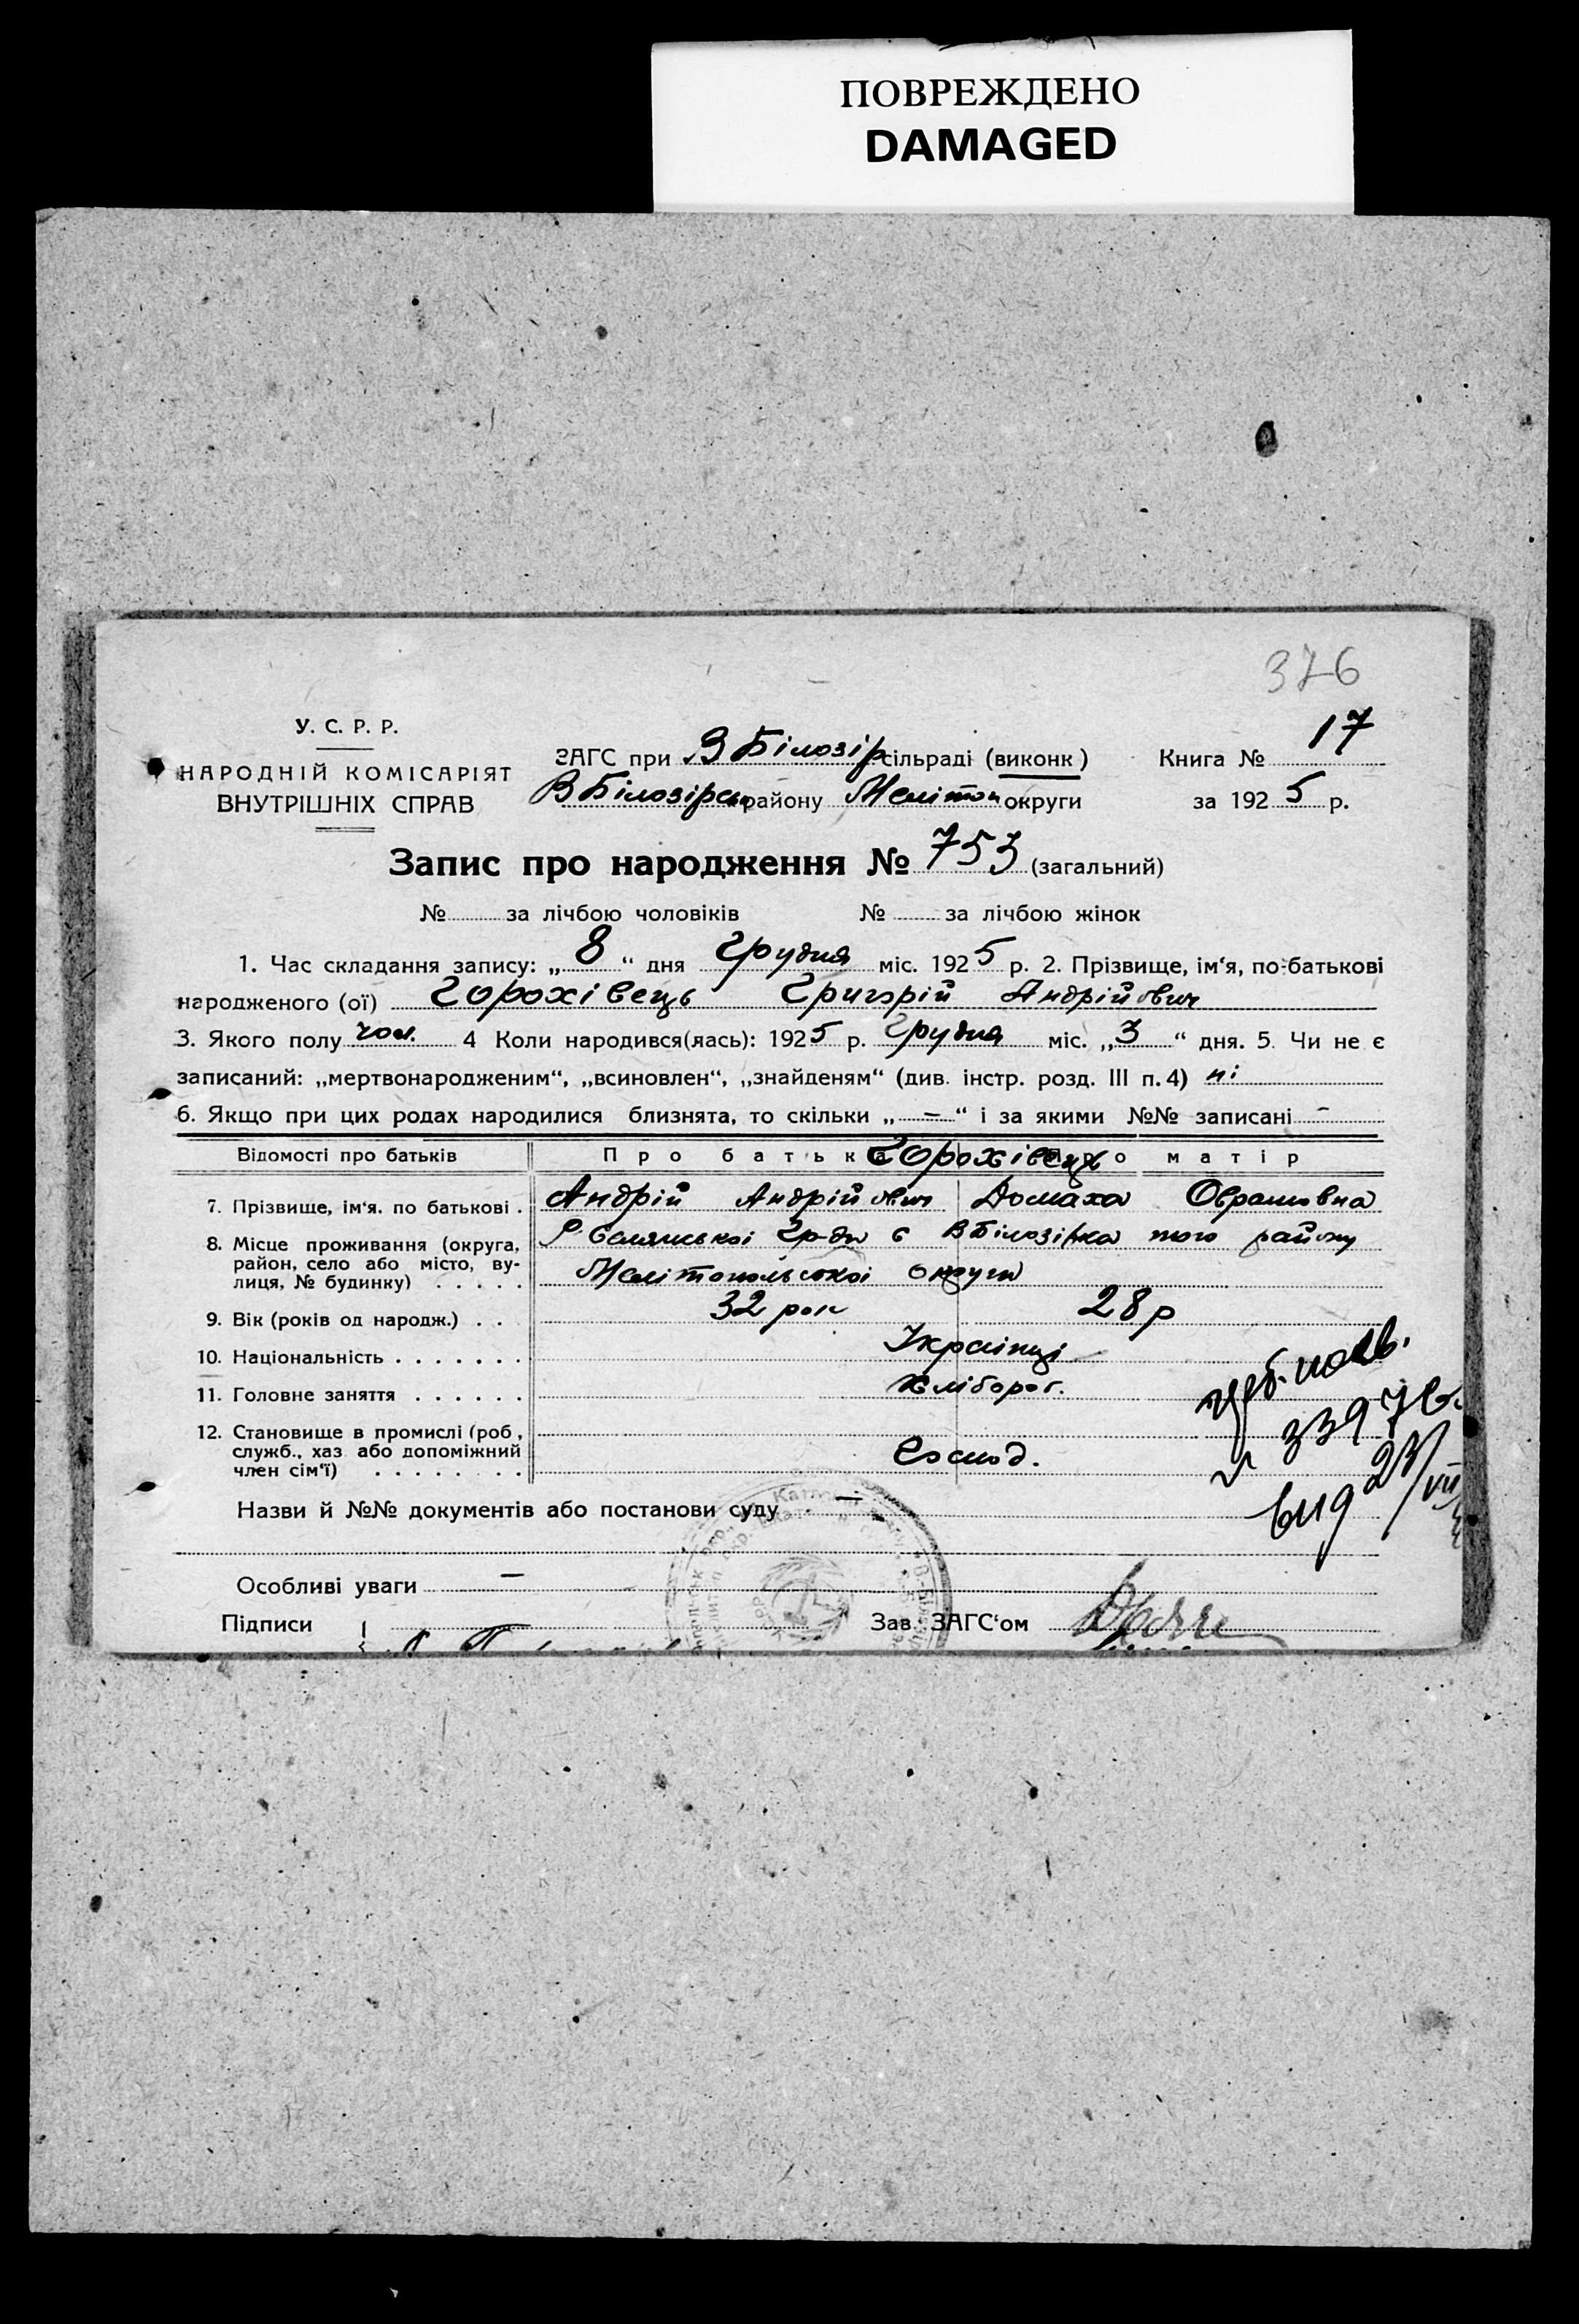 ПОВРЕЖДЕНО
DAMAGED
376
У. С. Р. Р.
НАРОДНІЙ КОМІСАРІЯТ
ВНУТРІШНІХ СПРАВ
ЗАГС при В Білозір сільраді (виконк) Книга № 17
В Білозірськ району Мелітоп округи за 1925 р.
Запис про народження № 753 (загальний)
№ за лічбою чоловіків № за лічбою жінок
1. Час складання запису: „ 8 “ дня Грудня міс. 1925 р. 2. Прізвище, ім‘я, по-батькові
народженого (ої) Горохівець Григорій Андрійович
3. Якого полу чол. 4 Коли народився(лась): 1925 р. Грудня міс. „ 3 “ дня. 5. Чи не є
записаний: „мертвонародженим“, „всиновлен“, „знайденям“ (див. інстр. розд. III п. 4) ні
6. Якщо при цих родах народилися близнята, то скільки „ — “ і за якими №№ записані -
Відомості про батьків Про батька Про матір
Горохівець
7. Прізвище, ім‘я. по батькові . Андрій Андрійович Домаха Оврамовна
8. Місце проживання (округа, район, село або місто, вулиця, № будинку) . . . . . Р. Селянської Гр-ди с ВБілозірка того району
Мелітопольської округи
9. Вік (років од народж.) . . 32 рок 28 р
10. Національність . . . . . . . Українці
11. Головне заняття . . . . . . Хлібороб.
12. Становище в промислі (роб, служб., хаз або допоміжний член сім‘ї) . . . . . . . . Господ.
33976
вид 23/VII
Назви й №№ документів або постанови суду . —
Особливі уваги —
Підписи Зав. ЗАГС‘ом